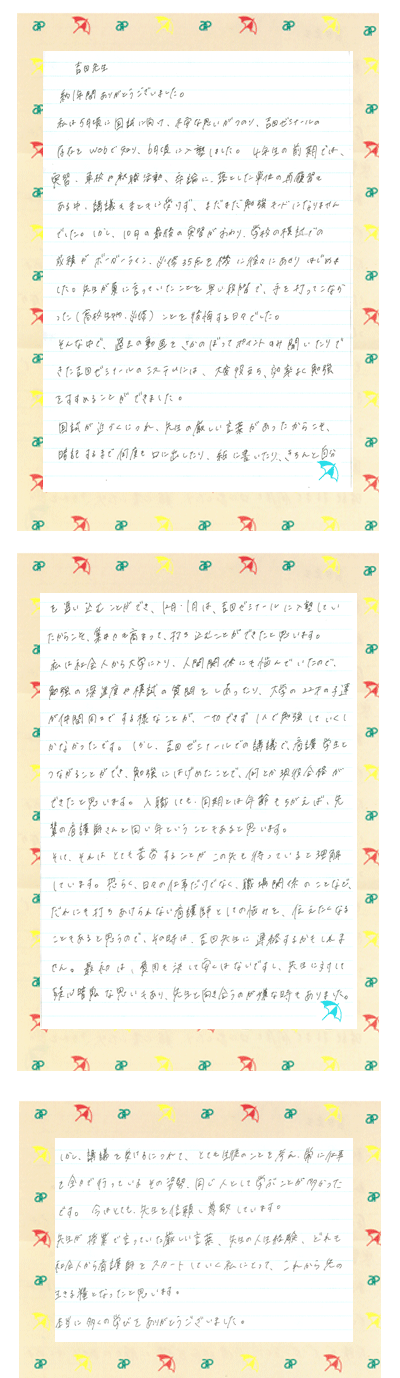 吉田先生
約1年間ありがとうございました。
私は5月頃に国試に向けて、不安な思いがつのり、吉田ゼミナールの
存在をWebで知り、6月頃に入塾しました。4年生の前期では、
実習、単位や就職活動、卒論に、落とした単位の再履習を
ある中、講議をまともに受けず、まだまだ勉強モードになりません
でした。しかし、10月の最後の実習がおわり、学校の模試での
成績がボーダーライン、必修35点を機に徐々にあせりはじめま
した。先生が夏に言っていたことを早い段階で、手を打ってこなか
った(高校生物・必修)ことを後悔する日々でした。
そんな中で、過去の動画をさかのぼってポイントのみ聞いたりで
きた吉田ゼミナールのシステムには、大変役立ち、効率よく勉強
をすすめることができました。
国試が近づくにつれ、先生の厳しい言葉があったからこそ、
暗記するまで何度も口に出したり、紙に書いたり、きちんと自分
を追い込むことができ、12月・1月は、吉田ゼミナールに入塾してい
たからこそ、集中力を高まって、打ち込むことができたと思います。
私は社会人から大学に入り、人間関係にも悩んでいたので、
勉強の深度や模試の質問をしあったり、大学の22才の子達
が仲間同士でする様なことが、一切できず1人で勉強していくし
かなかったです。しかし、吉田ゼミナールでの講議で、看護学生と
つながることができ、勉強にはげめたことで、何とか現役合格が
できたと思います。入職しても、同期とは年齢もちがえば、先
輩の看護師さんと同い年ということもあると思います。
そして、それはとても苦労することがこの先も待っていると理解
しています。恐らく、日々の仕事だけでなく、職場関係のことなど、
だれにも打ちあけられない看護師としての悩みを、伝えたくなる
こともあると思うので、その時は、吉田先生に連絡するかもしれま
せん。最初は、費用も決して安くはないですし、先生に対して
疑心暗鬼な思いもあり、先生と向き合うのが嫌な時もありました。
しかし、講議を受けるにつれて、とても生徒のことを考え、常に仕事
を全力で行っているその姿勢、同じ人として学ぶことが多かった
です。今はとても、先生を信頼し尊敬しています。
先生が授業で言っていた厳しい言葉、先生の人生経験、どれも
社会人から看護師をスタートしていく私にとって、これから先の
生きる糧となったと思います。
本当に多くの学びをありがとうございました。